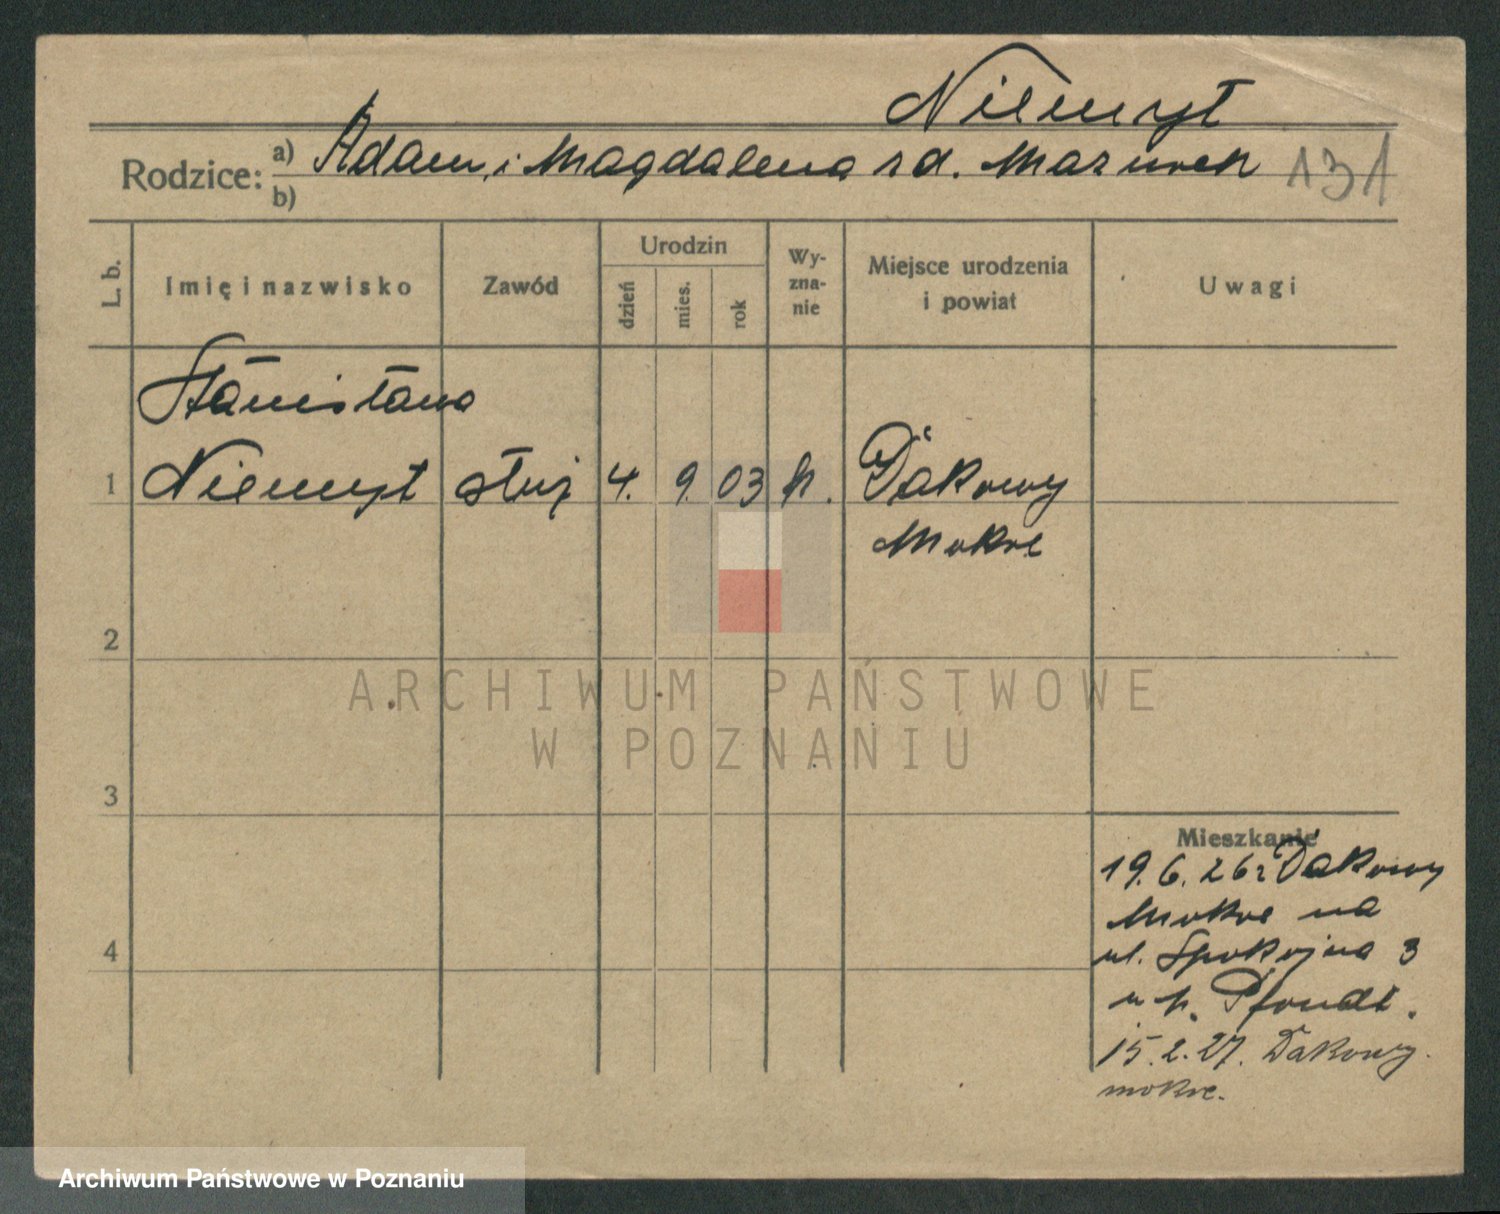 Niemyt
Rodzice: a) Adam i Magdalena zd. Mazurek 131
b)
L. b. Imię i nazwisko Zawód Urodzin dzień mies. rok Wyznanie Miejsce urodzenia i powiat Uwagi
Stanisława
1 Niemyt służ 4. 9. 03 k. Dakowy
Mokre
2
ARCHIWUM PAŃSTWOWE
W POZNANIU
3
Mieszkanie
19.6.26 z Dakowy
Mokre na
4 ul. Spokojna 3
u p.
15.2.27. Dakowy
mokre.
Archiwum Państwowe w Poznaniu